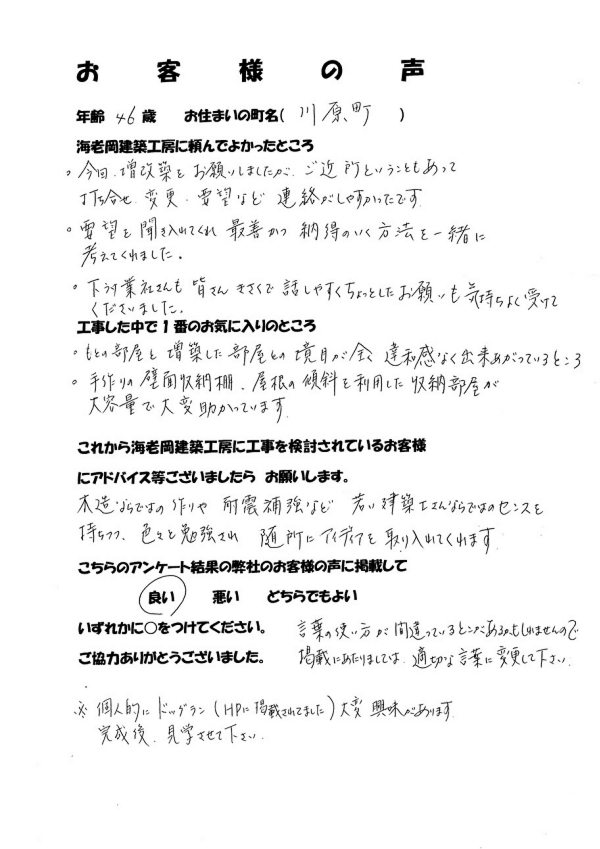 お客様の声
年齢 46 歳 お住まいの町名( 川原町 )
海老岡建築工房に頼んでよかったところ
。今回、増改築をお願いしましたが、ご近所ということもあって
打合せ、変更、要望など 連絡がしやすかったです
。要望を聞き入れてくれ 最善かつ 納得のいく 方法を一緒に
考えてくれました。
。下う け業社さんも 皆さん きさくで 話しやすくちょっとしたお願いも気持ちよく受けて
くださいました。
工事した中で1番のお気に入りのところ
・もとの部屋と 増築した部屋との境目が全く違和感なく出来あがっているところ
。手作りの壁面収納棚、屋根の傾斜を利用した収納部屋が
大容量で大変助かっています
これから海老岡建築工房に工事を検討されているお客様
にアドバイス等ございましたら お願いします。
木造ならではの作りや 耐震補強など 若い建築士さんならではのセンスを
持ちつつ、色々と勉強され 随所にアイディアを取り入れてくれます
こちらのアンケート結果の弊社のお客様の声に掲載して
良い 悪い どちらでもよい
いずれかに○をつけてください。 言葉の使い方が間違っているところがあるかもしれませんので
ご協力ありがとうございました。 掲載にあたりましては、適切な言葉に変更して下さい。
※ 個人的にドッグラン(HPに掲載されてました)大変興味があります
完成後、見学させて下さい。